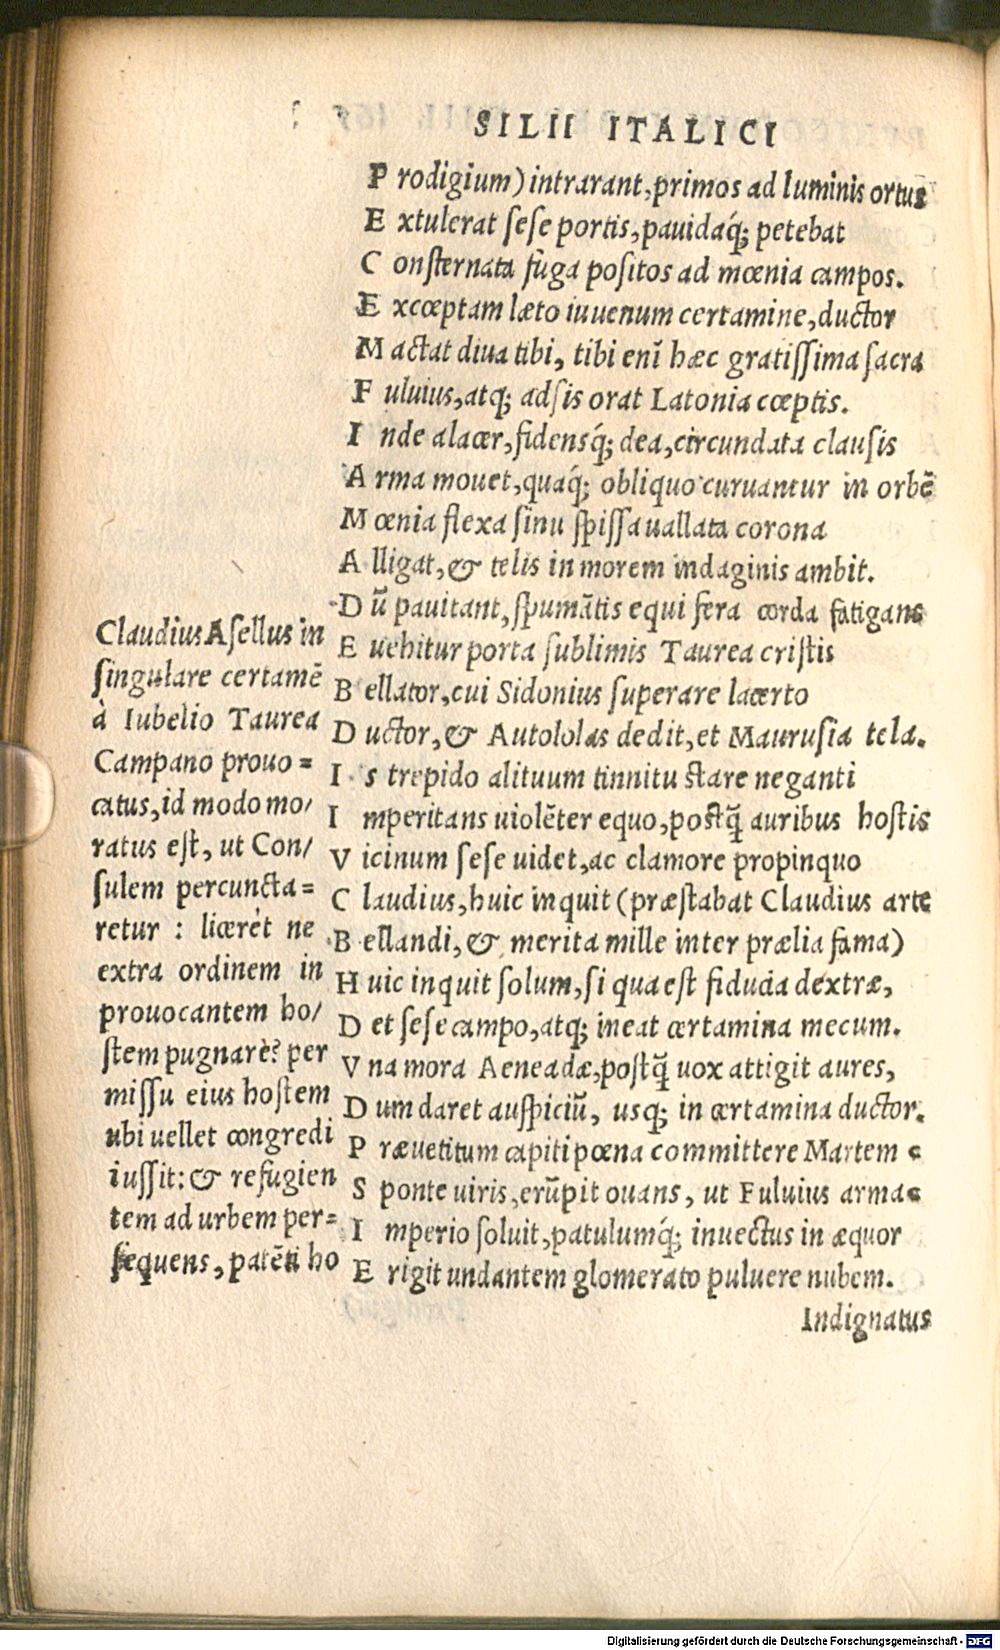 SILII ITALICI
Prodigium) intrarant, primos ad luminis ortus
Extulerat sese portis, pauidaq́; petebat
Consternata fuga positos ad mœnia campos.
Excœptam læto iuuenum certamine, ductor
Mactat diua tibi, tibi enī hæc gratissima sacra
Fuluius, atq; adsis orat Latonia cœptis.
Inde alacer, fidensq́; dea, circundata clausis
Arma mouet, quaq́; obliquo curuantur in orbē
Mœnia flexa sinu spissa uallata corona
Alligat, & telis in morem indaginis ambit.
Dū pauitant, spumātis equi fera corda fatigans
Euehitur porta sublimis Taurea cristis
Bellator, cui Sidonius superare lacerto
Ductor, & Autololas dedit, et Maurusia tela.
Is trepido alituum tinnitu stare neganti
Imperitans uiolēter equo, postq̄ auribus hostis
Vicinum sese uidet, ac clamore propinquo
Claudius, huic inquit (præstabat Claudius arte
Bellandi, & merita mille inter prælia fama)
Huic inquit solum, si qua est fiducia dextræ,
Det sese campo, atq; ineat certamina mecum.
Vna mora Aeneadæ, postq̄ uox attigit aures,
Dum daret auspiciū, usq; in certamina ductor.
Præuetitum capiti pœna committere Martem
Sponte uiris, erūpit ouans, ut Fuluius arma
Imperio soluit, patulumq́; inuectus in æquor
Erigit undantem glomerato puluere nubem.
Indignatus
Claudius Asellus in
singulare certamē
à Iubelio Taurea
Campano prouo=
catus, id modo mo/
ratus est, ut Con/
sulem percuncta=
retur : liceret ne
extra ordinem in
prouocantem ho/
stem pugnare? per
missu eius hostem
ubi uellet congredi
iussit: & refugien
tem ad urbem per=
sequens, patēti ho
Digitalisierung gefördert durch die Deutsche Forschungsgemeinschaft - DFG